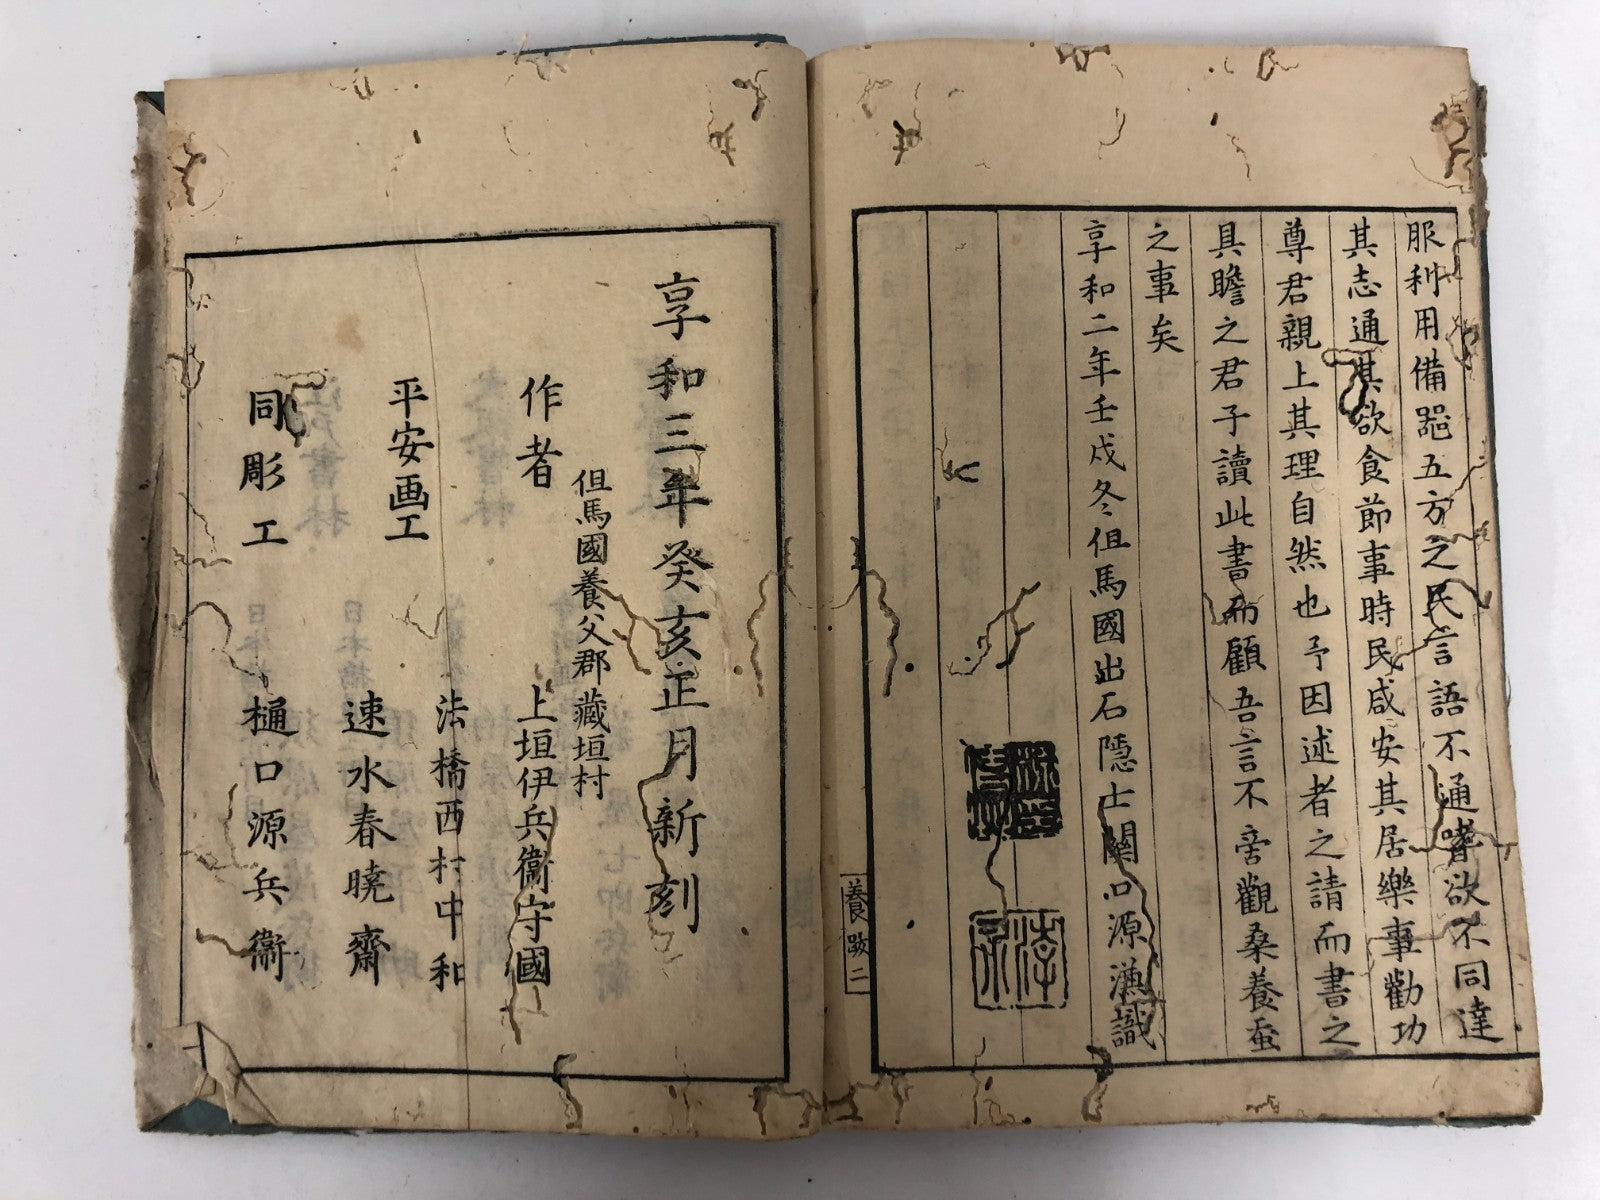 服利用備器五方之民言語不通嗜欲不同達
其志通其欲食節事時民咸安其居樂事勸功
尊君親上其理自然也予因述者之請而書之
具瞻之君子讀此書而顧吾言不啻觀桑養蚕
之事矣
享和二年壬戌冬但馬國出石隠士関口源漸識
養跋二
享和三年癸亥正月新刻
但馬國養父郡藏垣村
作者 上垣伊兵衞守國
法橋西村中和
平安画工
速水春曉齋
同彫工 樋口源兵衞